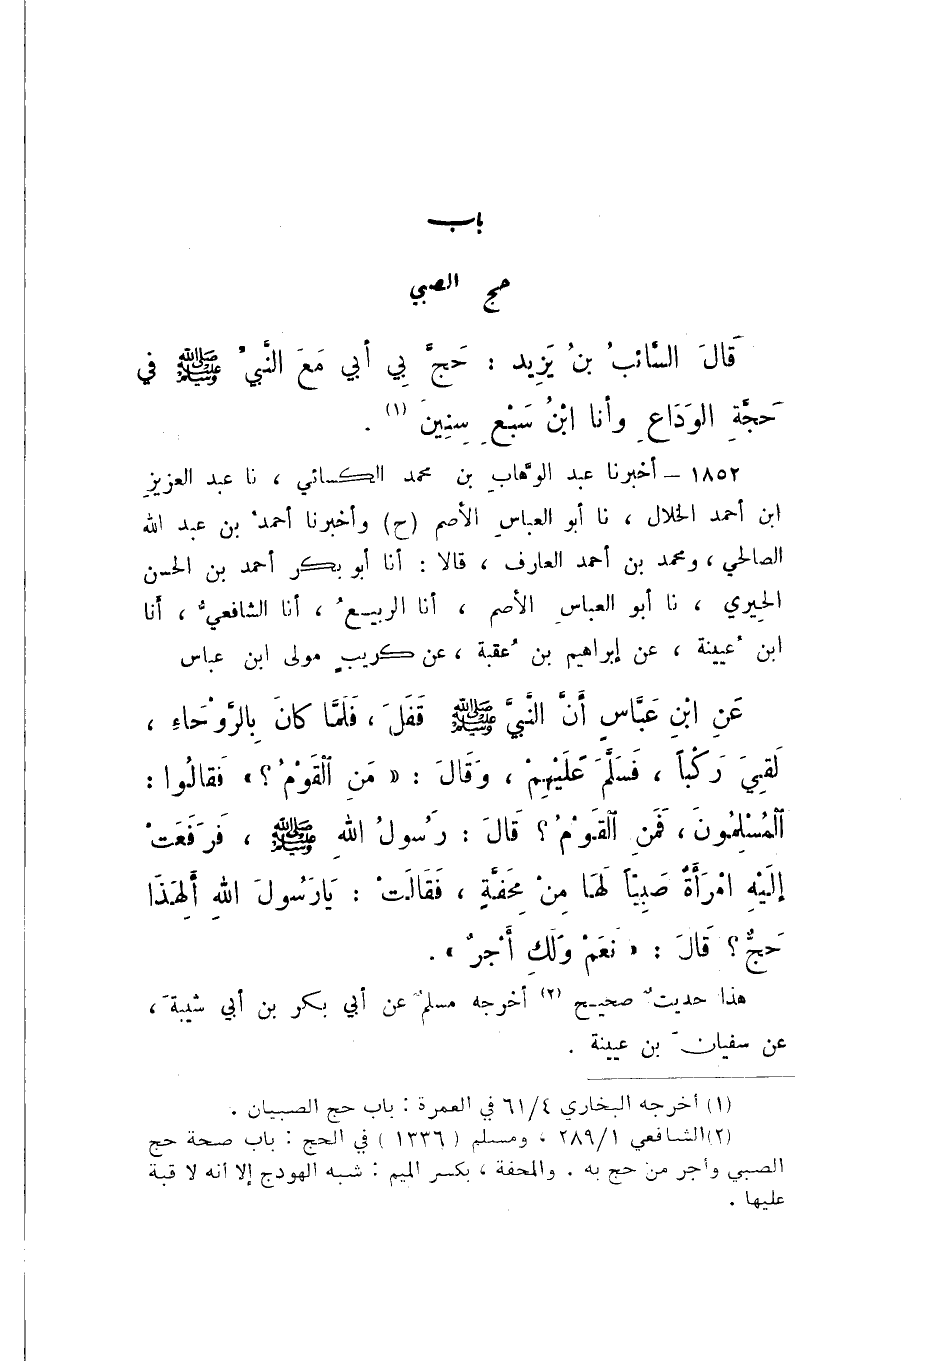 باب
حج الصبي
قَالَ السَّائبُ بنُ يَزِيد : حَجَّ بِي أبي مَعَ النَّبيِّ ﷺ في
حَجَّةِ الوَدَاعِ وأنا ابْنُ سَبْعِ سِنِينَ (١) .
١٨٥٢ – أخبرنا عبد الوهَّابِ بن محمد الكسائي ، نا عبد العزيزِ
ابن أحمد الخلال ، نا أبو العباسِ الأصم (ح) وأخبرنا أحمدُ بن عبد الله
الصالحي ، ومحمد بن أحمد العارف ، قالا : أنا أبو بكر أحمد بن الحسن
الحِيري ، نا أبو العباسِ الأصم ، أنا الربيعُ ، أنا الشافعيُّ ، أنا
ابن عُيينة ، عن إبراهيم بن عُقبة ، عن كريبٍ مولى ابن عباس
عَنِ ابْنِ عَبَّاسٍ أَنَّ النَّبيَّ ﷺ قَفَلَ ، فَلَمَّا كانَ بِالرَّوْحَاءِ ،
لَقِيَ رَكْباً ، فَسَلَّمَ عَلَيْهِمْ ، وَقَالَ : « مَنِ ٱلْقَوْمُ ؟ » فَقالُوا :
ٱلْمُسْلِمُونَ ، فَمَنِ ٱلْقَوْمُ ؟ قَالَ : رَسُولُ اللهِ ﷺ ، فَرَفَعَتْ
إِلَيْهِ امْرَأَةٌ صَبِيّاً لَهَا مِنْ مِحَفَّةٍ ، فَقَالَتْ : يَارَسُولَ اللهِ أَلِهَذَا
حَجٌّ ؟ قَالَ : « نَعَمْ وَلَكِ أَجْرٌ » .
هذا حديثٌ صحيح (٢) أخرجه مسلمٌ عن أبي بكر بن أبي شيبةَ ،
عن سفيانَ بن عيينة .
(١) أخرجه البخاري ٦١/٤ في العمرة : باب حج الصبيان .
(٢) الشافعي ٢٨٩/١ ، ومسلم ( ١٣٣٦ ) في الحج : باب صحة حج
الصبي وأجر من حج به . والمحفة ، بكسر الميم : شبه الهودج إلا أنه لا قبة
عليها .